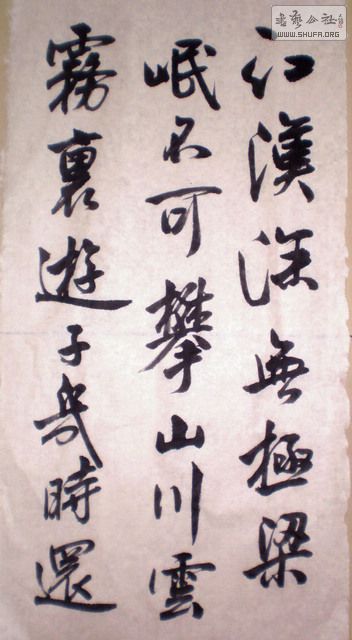 江漢深無極梁
岷不可攀山川雲
霧裏遊子幾時還
書藝公社
WWW.SHUFA.ORG